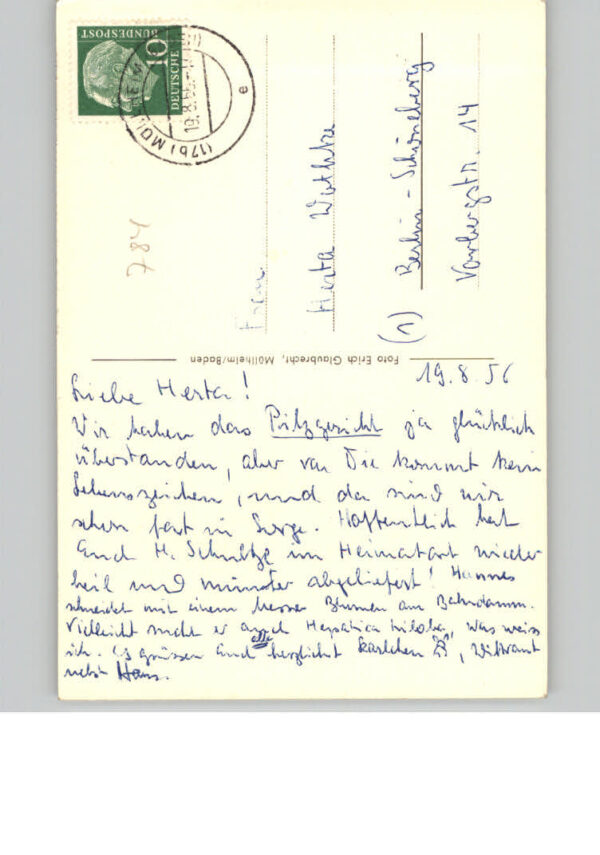 DEUTSCHE
BUNDESPOST
10
19.8.56
(17b) MÜLLHEIM
e
784
Frau
Herta
(1) Berlin-Schöneberg
Vorbergstr. 14
Foto Erich Glaubrecht, Müllheim/Baden
19.8.56
Liebe Herta!
Wir haben das Pilzgericht ja glücklich
überstanden, aber von Dir kommt kein
Lebenszeichen, und da sind wir
schon fast in Sorge. Hoffentlich hat
Euch H. Schultze im Heimatort wieder
heil und munter abgeliefert! Hannes
schneidet mit einem Messer Blumen am Bahndamm.
Vielleicht sucht er auch Hepatica triloba, was weiss
ich. Es grüssen Euch alle herzlichst Karlchen,
nebst Hans.